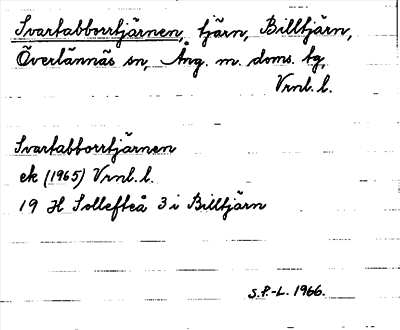 Svartabborrtjärnen, tjärn, Billtjärn,
Överlännäs sn, Ång. m. doms. tg,
Vrnl. l.
Svartabborrtjärnen
ek (1965) Vrnl. l.
19 H Sollefteå 3 i Billtjärn
S.P.-L. 1966.